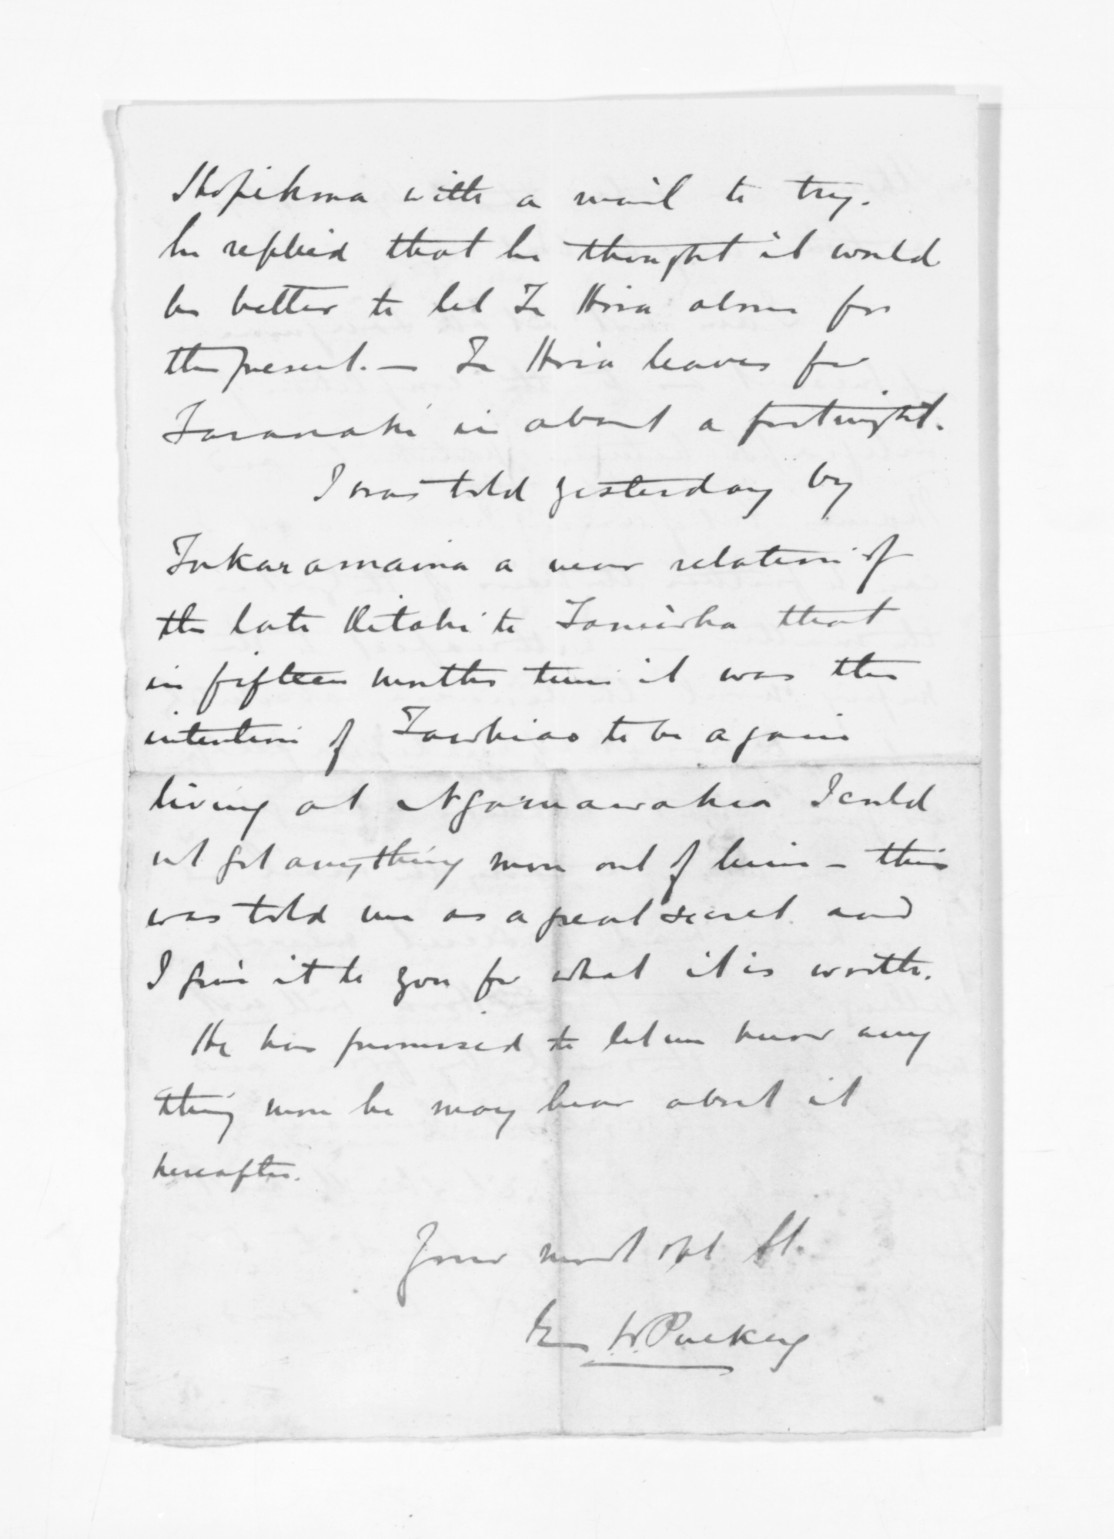 with a mail to try.
he replied that he thought it would
be better to let Te Hira alone for
the present. — Te Hira leaves for
Taranaki in about a fortnight.
I was told yesterday by
Tukaramaina a near relation of
the late Kitahi te Taniwha that
in fifteen months time it was the
intention of Tawhiao to be again
living at Ngaruawahia I could
not get anything more out of him – this
was told me as a great secret and
I give it to you for what it is worth.
He has promised to let me know any
thing more he may hear about it
hereafter.
Your most obt St.
E. W. Puckey